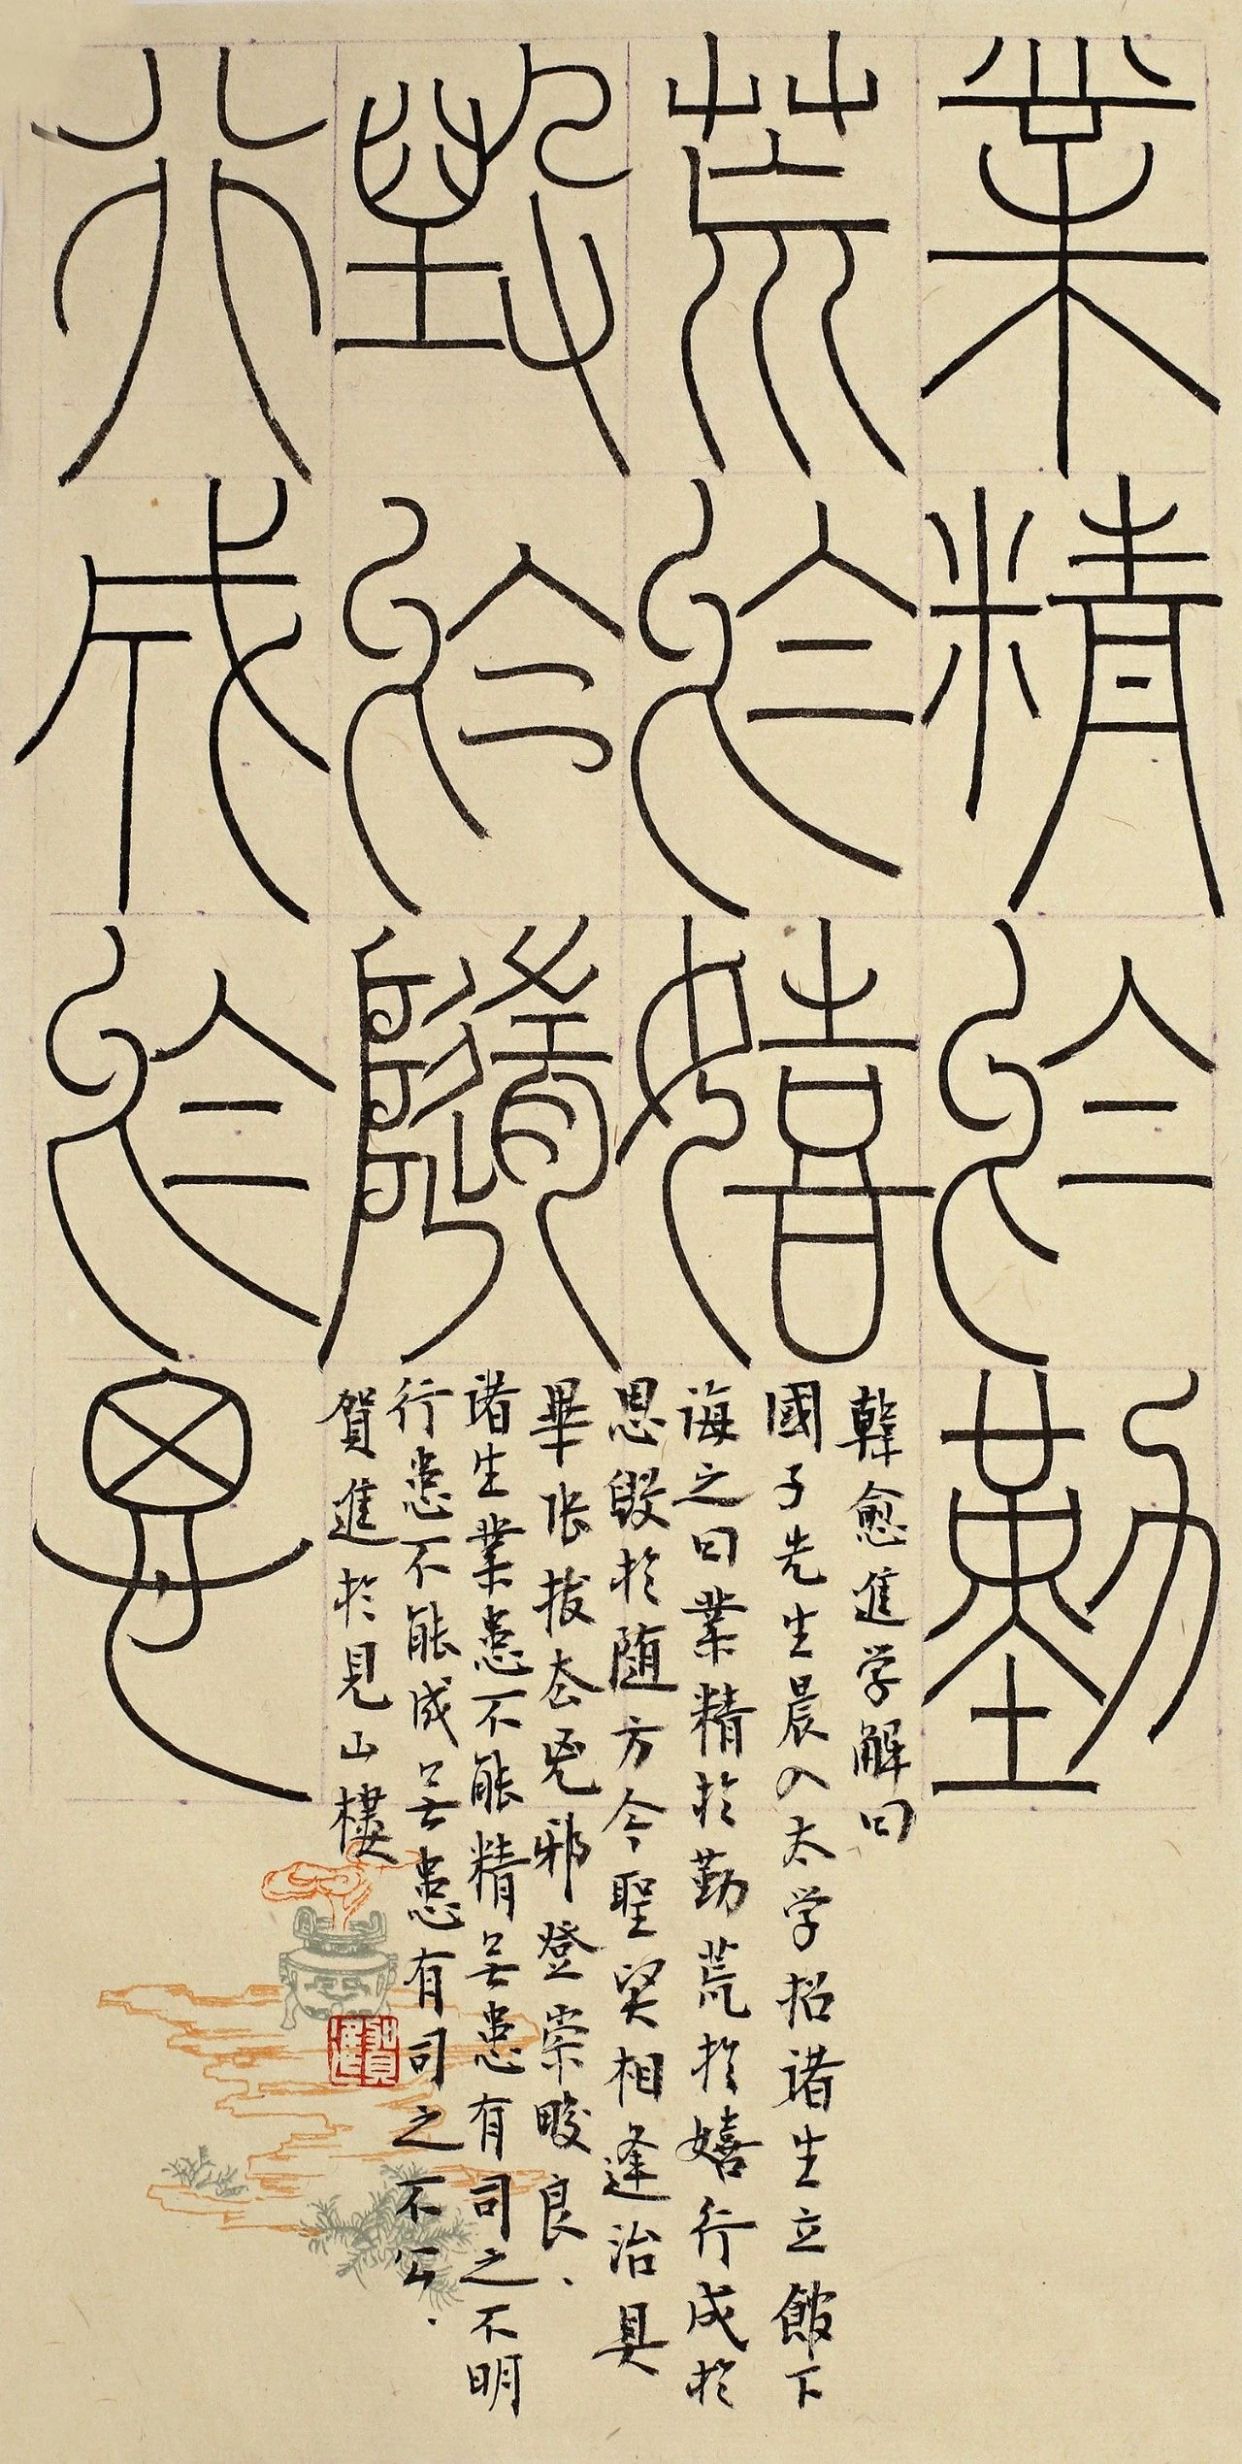 業精於勤
荒於嬉
毀於隨
行成於思
韓愈進学解曰
國子先生晨入太学招诸生立館下
诲之曰業精於勤荒於嬉行成於
思毁於随方今聖賢相逢治具
畢张拔去兇邪登崇畯良、
诸生業患不能精無患有司之不明
行患不能成無患有司之不公.
賀進於見山樓